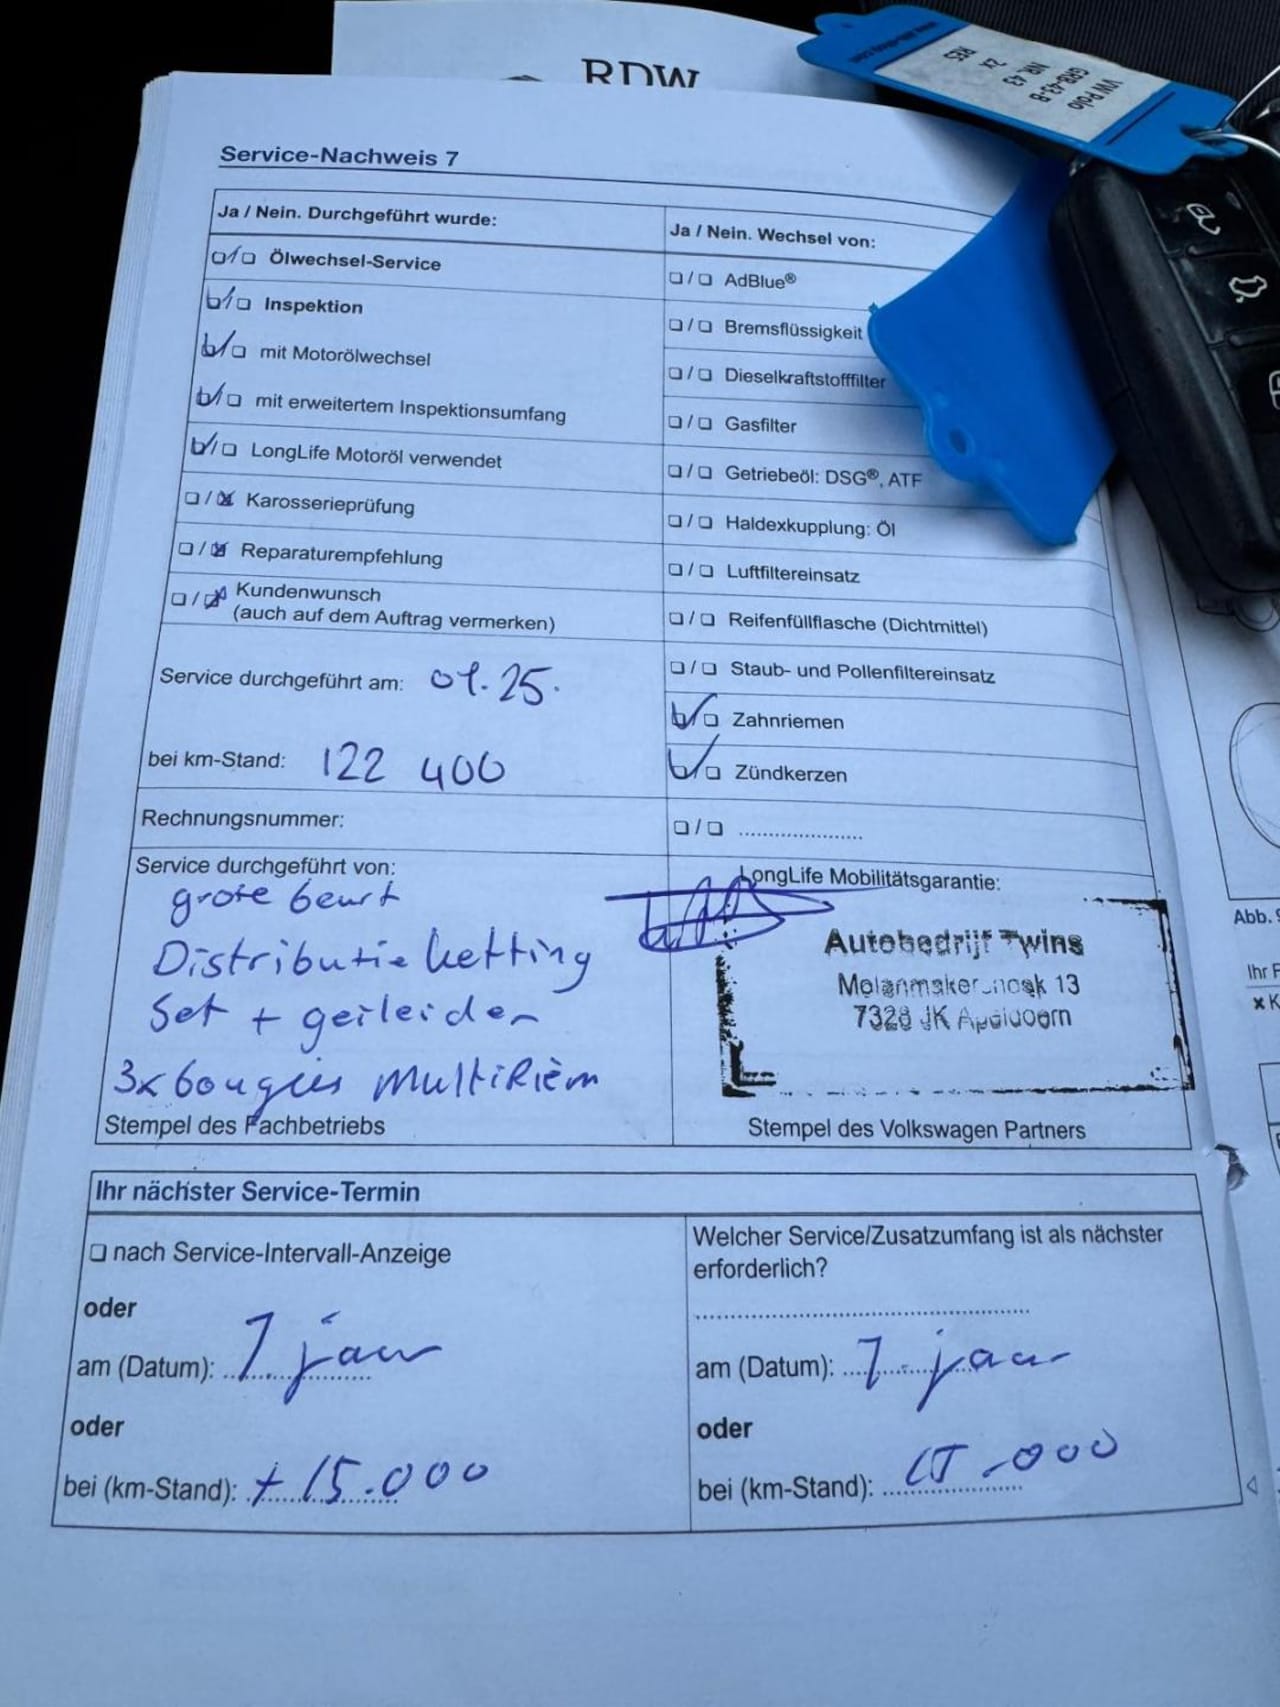 RDW
VW Polo
GRB-43-B
NR. 43
2X
RES
Service-Nachweis 7
Ja / Nein. Durchgeführt wurde:
Ölwechsel-Service
Inspektion
mit Motorölwechsel
mit erweitertem Inspektionsumfang
LongLife Motoröl verwendet
Karosserieprüfung
Reparaturempfehlung
Kundenwunsch
(auch auf dem Auftrag vermerken)
Service durchgeführt am: 01.25.
bei km-Stand: 122 400
Rechnungsnummer:
Service durchgeführt von:
grote beurt
Distributie ketting
Set + geileider
3x bougies Multiriem
Stempel des Fachbetriebs
Ja / Nein. Wechsel von:
AdBlue®
Bremsflüssigkeit
Dieselkraftstofffilter
Gasfilter
Getriebeöl: DSG®, ATF
Haldexkupplung: Öl
Luftfiltereinsatz
Reifenfüllflasche (Dichtmittel)
Staub- und Pollenfiltereinsatz
Zahnriemen
Zündkerzen
LongLife Mobilitätsgarantie:
Autobedrijf Twins
13
7328 JK Apeldoorn
Stempel des Volkswagen Partners
Ihr nächster Service-Termin
nach Service-Intervall-Anzeige
oder
am (Datum): 1 jaar
oder
bei (km-Stand): + 15.000
Welcher Service/Zusatzumfang ist als nächster
erforderlich?
am (Datum): 1 jaar
oder
bei (km-Stand): 15.000
Abb.
Ihr